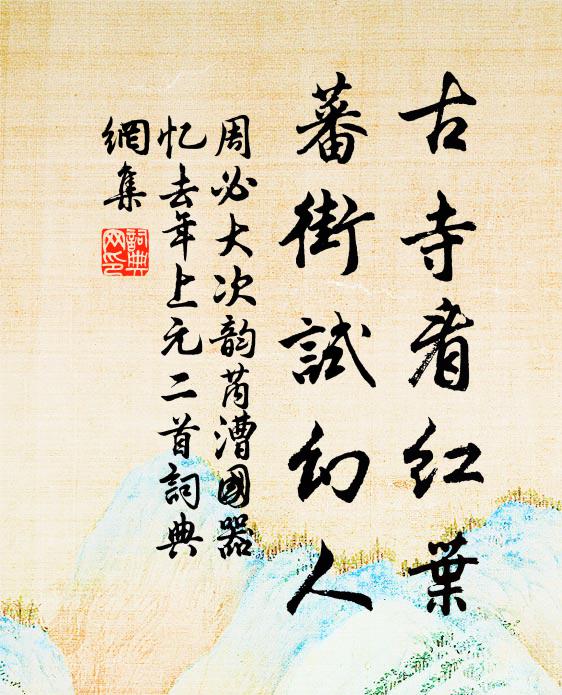 古寺看红葉
蕃街試幻人
周必大次韵芮漕國器
忆去年上元二首詞典
網集
詞典網印